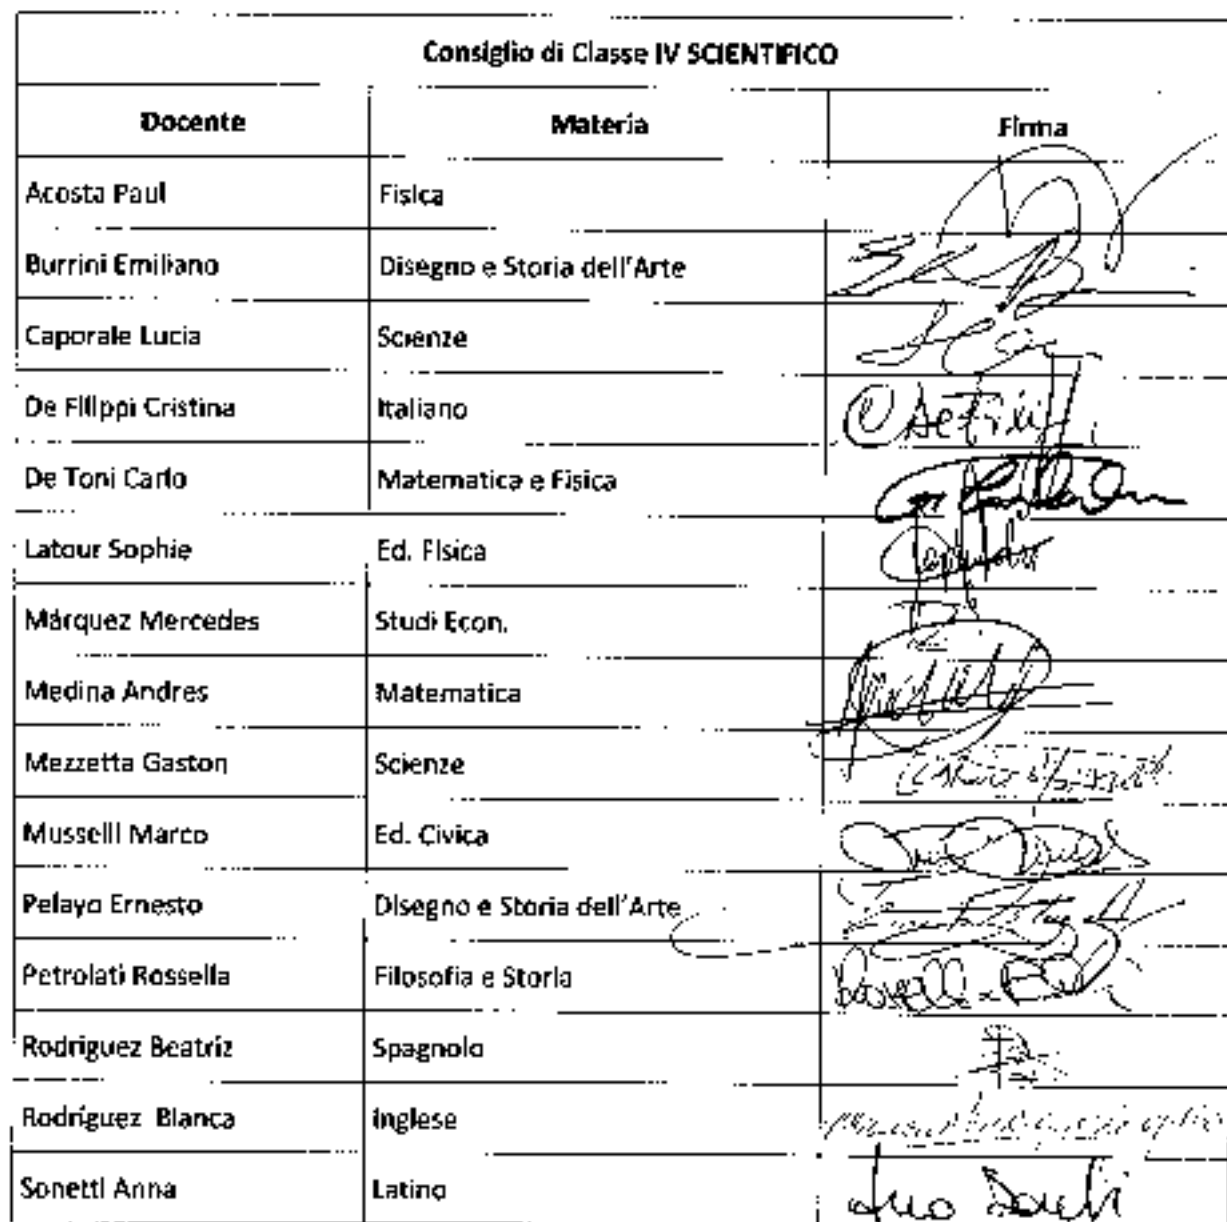 Consiglio di Classe IV SCIENTIFICO
Docente Materia Firma
Acosta Paul Fisica
Burrini Emiliano Disegno e Storia dell'Arte
Caporale Lucia Scienze
De Filippi Cristina Italiano
De Toni Carlo Matematica e Fisica
Latour Sophie Ed. Fisica
Márquez Mercedes Studi Econ.
Medina Andres Matematica
Mezzetta Gaston Scienze
Musselli Marco Ed. Civica
Pelayo Ernesto Disegno e Storia dell'Arte
Petrolati Rossella Filosofia e Storia
Rodriguez Beatriz Spagnolo
Rodríguez Blanca Inglese
Sonetti Anna Latino